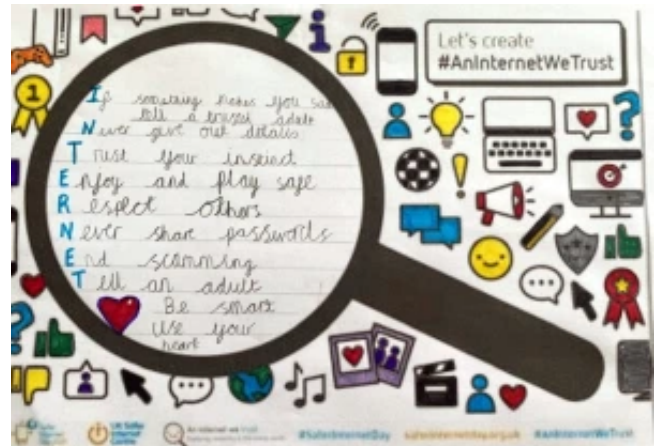 Let's create
#AnInternetWeTrust
If something makes you sad
tell a trusted adult
Never give out details
Trust your instinct
Enjoy and play safe
Respect others
Never share passwords
End scamming
Tell an adult
Be smart
Use your
heart
UK Safer
Internet
Centre
An internet we trust
#SaferInternetDay
saferinternetday.org.uk
#AnInternetWeTrust